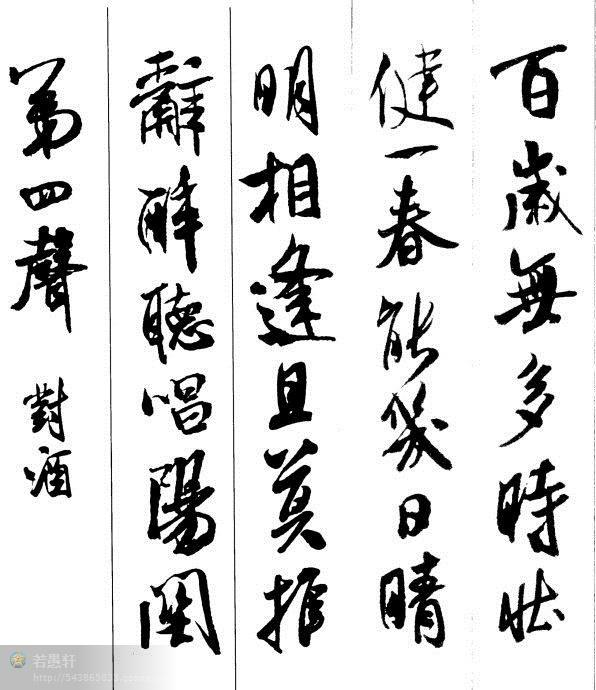 百歲無多時壯
健一春能幾日晴
明相逢且莫推
辭醉聽唱陽關
第四聲 對酒
若愚轩